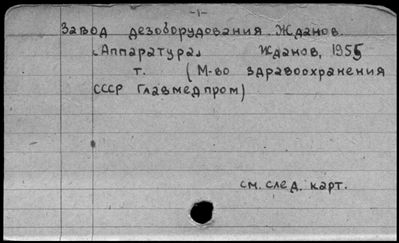 -1-
Завод дезоборудования Жданов.
„Аппаратура" Жданов, 1955
т. (М-во здравоохранения
СССР Главмедпром)
см. след. карт.